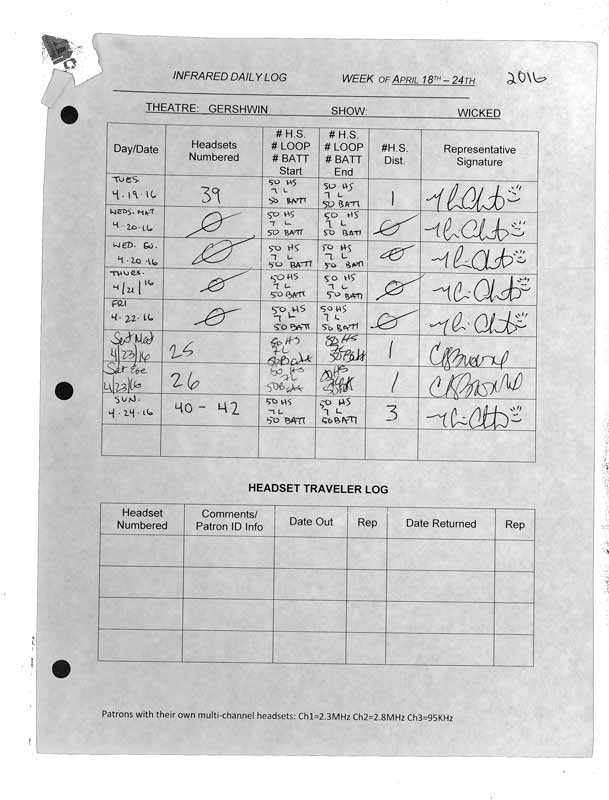 INFRARED DAILY LOG WEEK OF APRIL 18TH – 24TH 2016
THEATRE: GERSHWIN SHOW: WICKED
Day/Date
Headsets
Numbered
# H.S.
# LOOP
# BATT
Start
# H.S.
# LOOP
# BATT
End
#H.S.
Dist.
Representative
Signature
TUES
4.19.16
39
50 HS
7 L
50 BATT
50 HS
7 L
50 BATT
1
WEDS. MAT
4.20.16
Ø
50 HS
7 L
50 BATT
50 HS
7 L
50 BATT
Ø
WED. EV.
4.20.16
Ø
50 HS
7 L
50 BATT
50 HS
7 L
50 BATT
Ø
THURS.
4/21/16
Ø
50 HS
7 L
50 BATT
50 HS
7 L
50 BATT
Ø
FRI
4.22.16
Ø
50 HS
7 L
50 BATT
50 HS
7 L
50 BATT
Ø
Sat Mat
4/23/16
25
50 HS
7 L
50 Batt
50 HS
50 Batt
1
Sat Eve
4/23/16
26
50 HS
50 Batt
1
SUN.
4.24.16
40 - 42
50 HS
7 L
50 BATT
50 HS
7 L
50 BATT
3
HEADSET TRAVELER LOG
Headset
Numbered
Comments/
Patron ID Info
Date Out
Rep
Date Returned
Rep
Patrons with their own multi-channel headsets: Ch1=2.3MHz Ch2=2.8MHz Ch3=95KHz